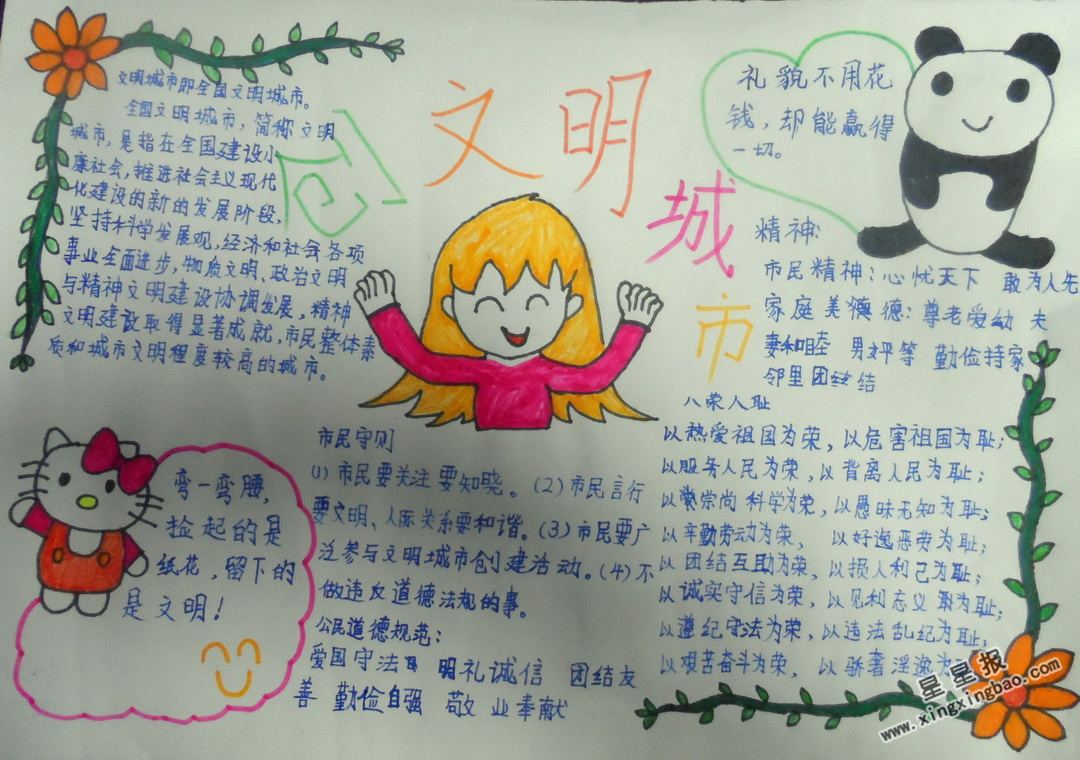 创文明城市
文明城市即全国文明城市。
全国文明城市，简称文明
城市，是指在全国建设小
康社会，推进社会主义现代
化建设的新的发展阶段，
坚持科学发展观，经济和社会各项
事业全面进步，物质文明、政治文明
与精神文明建设协调发展，精神
文明建设取得显著成就，市民整体素
质和城市文明程度较高的城市。
礼貌不用花
钱，却能赢得
一切。
精神：
市民精神：心忧天下 敢为人先
家庭美德：尊老爱幼 夫
妻和睦 男女平等 勤俭持家
邻里团结
弯一弯腰，
捡起的是
纸花，留下的
是文明！
市民守则
(1)市民要关注要知晓。(2)市民言行
要文明、人际关系要和谐。(3)市民要广
泛参与文明城市创建活动。(4)不
做违反道德法规的事。
公民道德规范：
爱国守法 明礼诚信 团结友
善 勤俭自强 敬业奉献
八荣八耻
以热爱祖国为荣，以危害祖国为耻；
以服务人民为荣，以背离人民为耻；
以崇尚科学为荣，以愚昧无知为耻；
以辛勤劳动为荣，以好逸恶劳为耻；
以团结互助为荣，以损人利己为耻；
以诚实守信为荣，以见利忘义为耻；
以遵纪守法为荣，以违法乱纪为耻；
以艰苦奋斗为荣，以骄奢淫逸为
星星报
www.xingxingbao.com